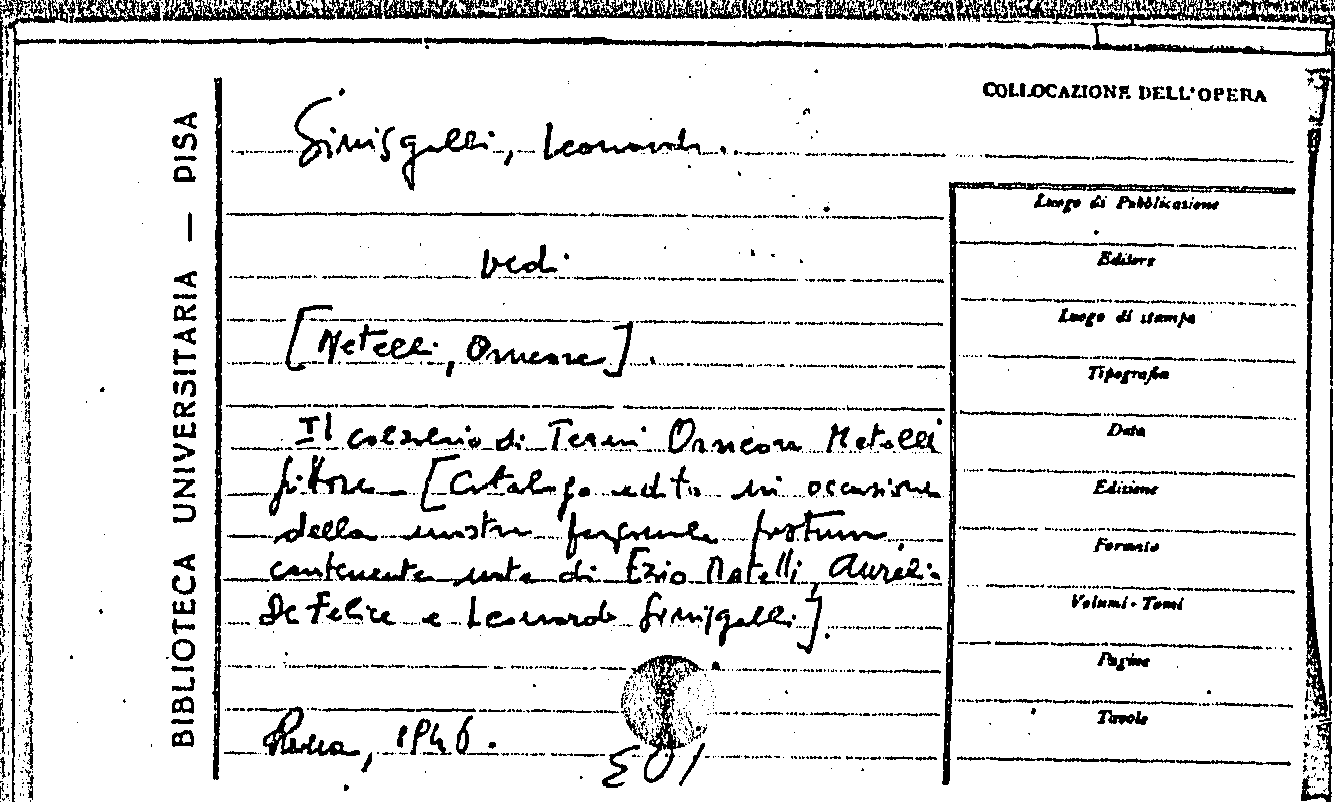 BIBLIOTECA UNIVERSITARIA — PISA
COLLOCAZIONE DELL'OPERA
Sinisgalli, Leonardo.
vedi
[Metelli, Orneore].
Il calzolaio di Terni Orneore Metelli
pittore [Catalogo edito in occasione
della mostra personale postuma,
contenente note di Ezio Metelli, Aurelio
De Felice e Leonardo Sinisgalli].
Roma, 1946.
Luogo di Pubblicazione
Editore
Luogo di stampa
Tipografia
Data
Edizione
Formato
Volumi - Tomi
Pagine
Tavole